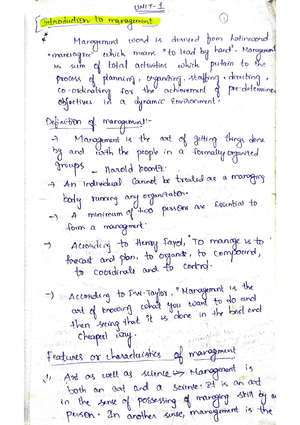 UNIT-1
Introduction to management
1
* Management word is derived from latinword
"maneiagra" which means "to lead by hand". Management
is sum of total activities which pertain to the
process of planning, organizing, staffing, directing,
co-ordinating for the achievement of pre-determined
objectives in a dynamic Environment.
Definition of management:-
-> Management is the art of getting things done
by and with the people in a formally organised
groups - Harold koontz.
-> An individual cannot be treated as a managing
body running any organization.
-> A minimum of two persons are Essential to
form a management.
-> According to Henry Fayol, "To manage is to
forecast and plan, to organize, to compound,
to coordinate and to control.
-> According to F.w.Taylor, "Management is the
art of knowing what you want to do and
then seeing that it is done in the best and
cheapest way.
Features or characteristics of management
1) Art as well as science => Management is
both an art and a science. It is an art
in the sense of possessing of managing skill by a
person. In another sense, management is the